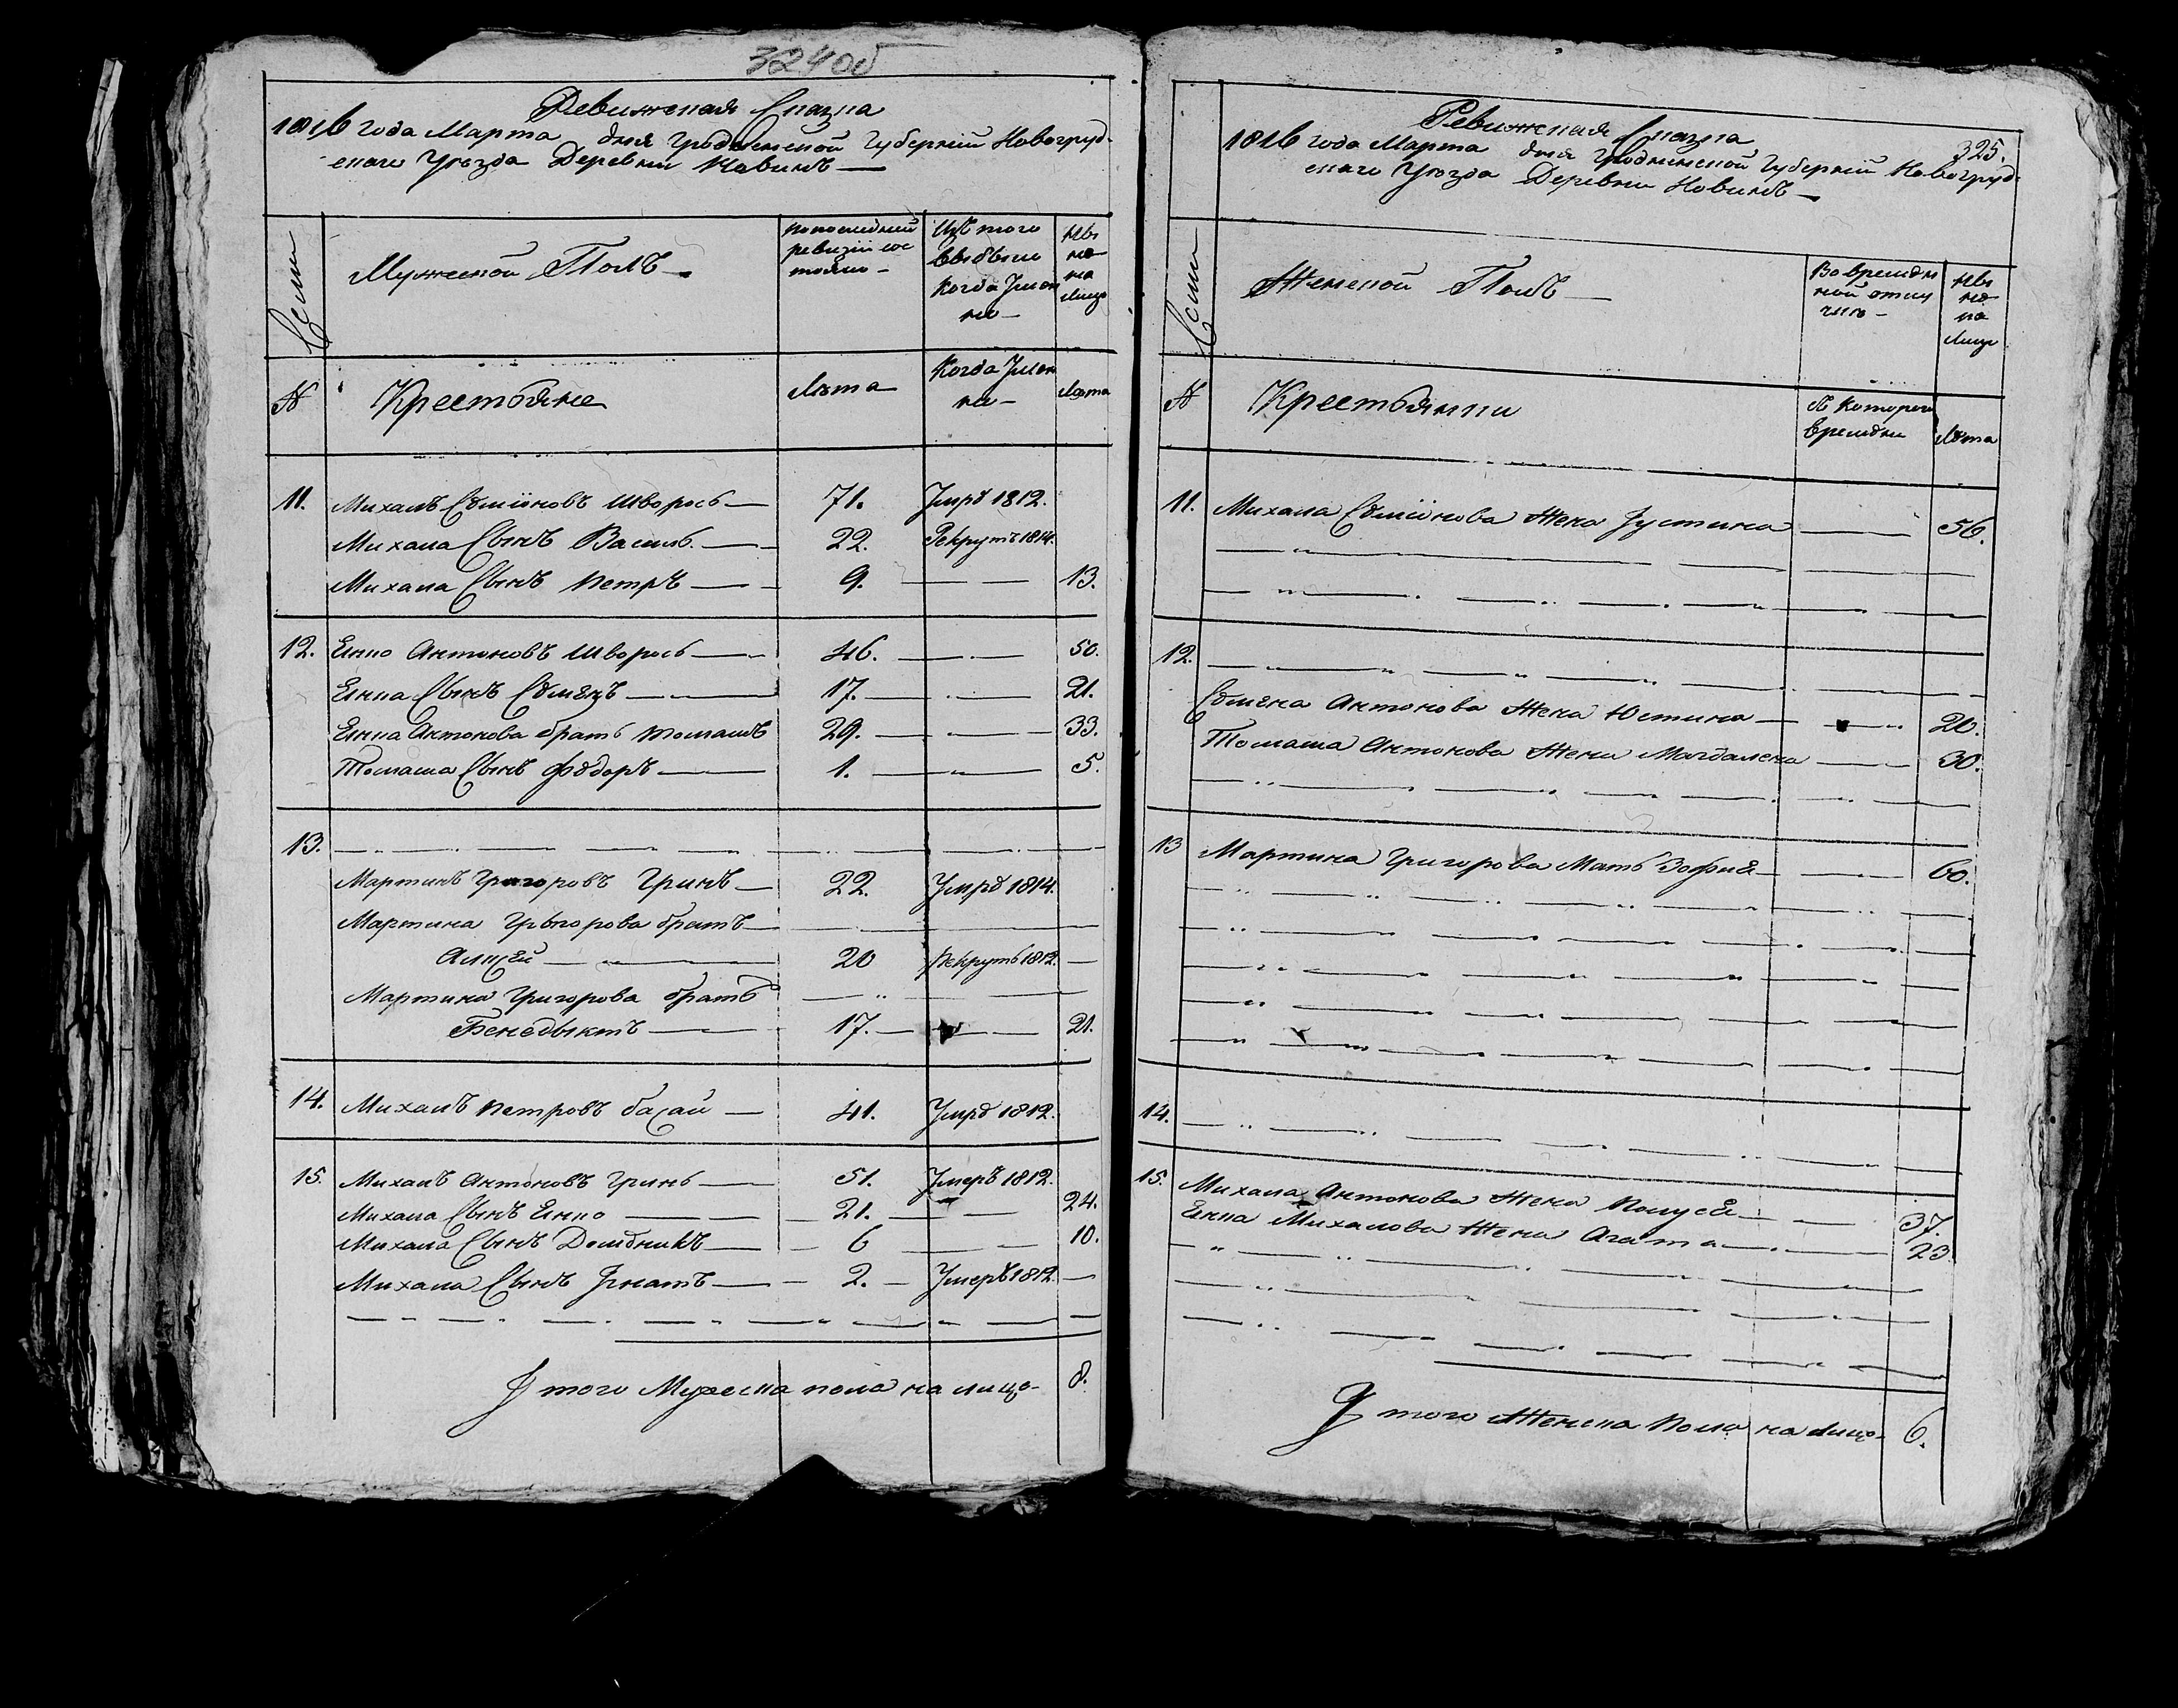 324об
Ревижская Сказка
1816 года Марта дня Гродненской Губерніи Новогруд-
скаго Уѣзда Деревни Новикъ —
Семи
Мужеской Полъ —
по последней
ревизіи сос
тояло —
Изъ того
выбыло
когда Имен
но —
Ны
нѣ
на
лицо
№
Крестьяне
Лѣта
Когда Имен
но —
Лѣта
11. Михалъ Сѣміоновъ Шворобъ — 71. Умръ 1812.
Михала Сынъ Василь — 22. Рекрутъ 1814.
Михала Сынъ Петръ — 9. — 13.
12. Янко Антоновъ Шворобъ — 46. — 50.
Янка Сынъ Сѣмѣнъ — 17. — 21.
Янка Антонова братъ Томашъ 29. — 33.
Томаша Сынъ Фѣдоръ — 1. — 5.
13.
Мартинъ Григоровъ Гринь — 22. Умръ 1814.
Мартина Григорова братъ —
20 Рекрутъ 1812. —
Мартина Григорова братъ —
Бенедыктъ — 17. — 21.
14. Михалъ Петровъ басай — 41. Умръ 1812.
15. Михалъ Антоновъ Гринь — 51. Умеръ 1812.
Михала Сынъ Янко — 21. — 24.
Михала Сынъ Домѣникъ — 6 — 10.
Михала Сынъ Игнатъ — 2. — Умеръ 1812 —
Итого Мужеска пола на лицо — 8.
325.
Ревижская Сказка
1816 года Марта дня Гродненской Губерніи Новогруд-
скаго Уѣзда Деревни Новикъ —
Семи
Женской Полъ —
Во времѣн
ной отлу
чкѣ —
Ны
нѣ
на
Лицо
№
Крестьянки
С Котораго
времѣни
Лѣта
11. Михала Сѣміонова Жена Густина — 56.
12.
Сѣмѣна Антонова Жена Юстина — 20.
Томаша Антонова Жена Магдалена — 30.
13 Мартина Григорова Мать Зофия — 60.
14.
15. Михала Антонова Жена — 37.
Янка Михалова Жена Агата — 23
Итого Женска Пола на лицо — 6.